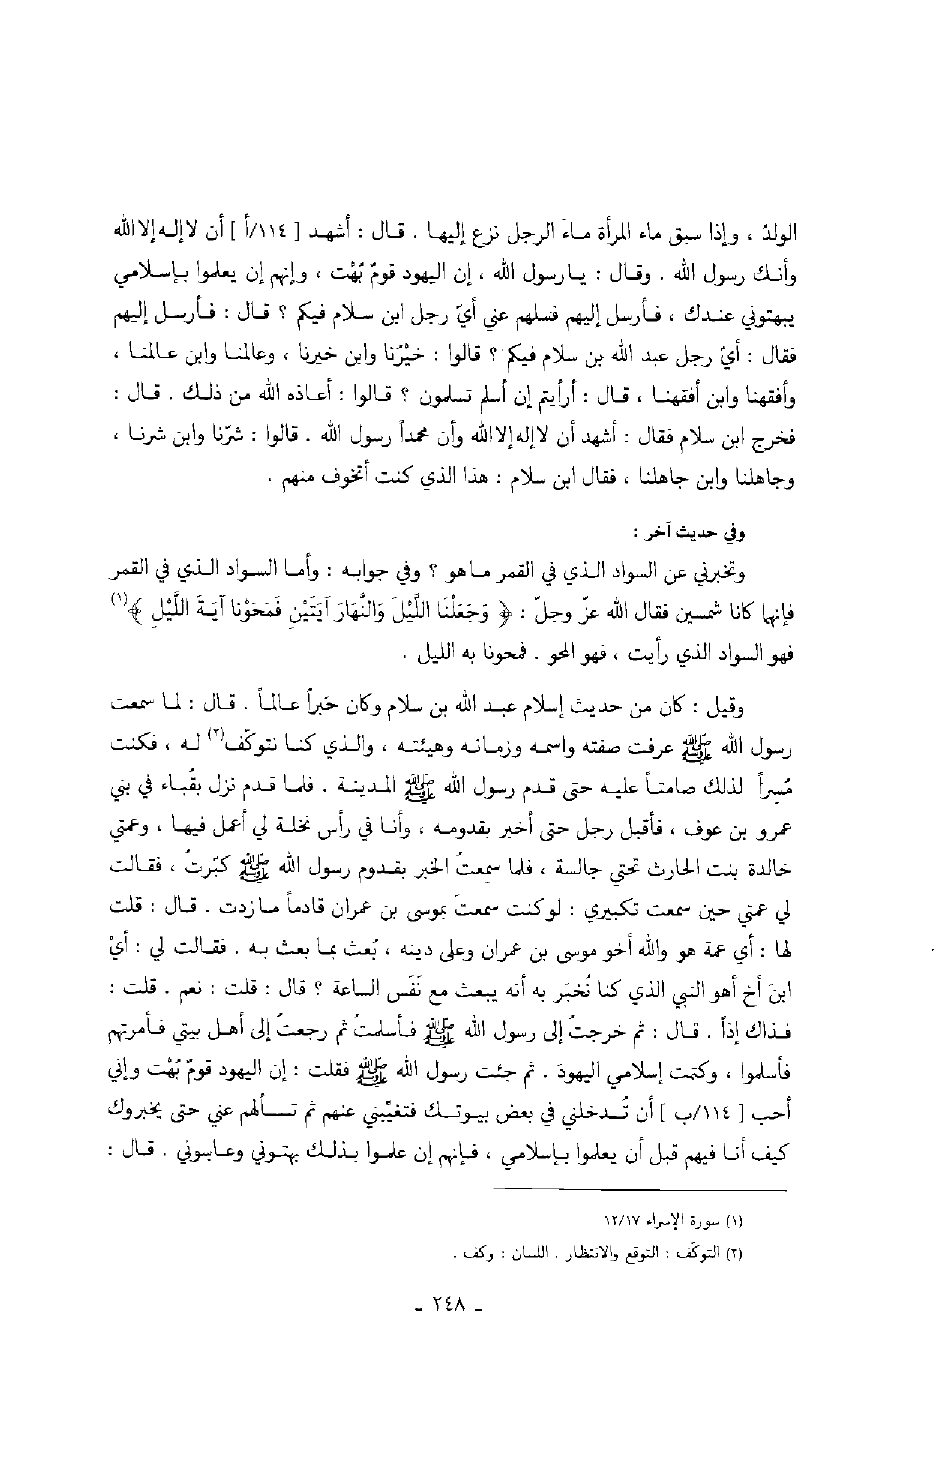 الولدَ ، وإذا سبق ماء المرأة مـاءَ الرجل نزع إليهـا . قـال : أشهـد [ ١١٤/أ ] أن لا إلـه إلا الله
وأنـك رسول الله . وقـال : يـارسول الله ، إن اليهود قومٌ بُهْت ، وإنهم إن يعلموا بـإسلامي
يبهتوني عنـدك ، فـأرسل إليهم فسلهم عني أيّ رجل ابن سـلام فيكم ؟ قـال : فـأرسـل إليهم
فقال : أيّ رجل عبد الله بن سلام فيكم ؟ قالوا : خيْرُنا وابن خيرنا ، وعالمنـا وابن عـالمنـا ،
وأفقهنا وابن أفقهنـا ، قـال : أرأيتم إن أسلم تسلمون ؟ قـالوا : أعـاذه الله من ذلـك . قـال :
فخرج ابن سلام فقال : أشهد أن لا إله إلا الله وأن محمداً رسول الله . قالوا : شرّنا وابن شرنـا ،
وجاهلنا وابن جاهلنا ، فقال ابن سلام : هذا الذي كنت أتخوف منهم .
وفي حديث آخر :
وتخبرني عن السواد الـذي في القمر مـاهو ؟ وفي جوابـه : وأمـا السـواد الـذي في القمر
فإنها كانا شمسـين فقال الله عزّ وجلّ : ﴿ وَجَعَلْنَا اللَّيْلَ وَالنَّهَارَ آيَتَيْنِ فَمَحَوْنا آيَـةَ اللَّيْلِ ﴾(١)
فهو السواد الذي رأيت ، فهو المحو . فمحونا به الليل .
وقيل : كان من حديث إسلام عبـد الله بن سلام وكان حَبراً عـالمـاً . قـال : لمـا سمعت
رسول الله ﷺ عرفت صفته واسمه وزمـانـه وهيئتـه ، والـذي كنـا نتوكّف(٢) لـه ، فكنت
مُسِراً لذلك صامتـاً عليـه حتى قدم رسول الله ﷺ المـدينـة . فلمـا قـدم نزل بقُبـاء في بني
عمرو بن عوف ، فأقبل رجل حتى أخبر بقدومـه ، وأنـا في رأس نخلـة لي أعمل فيهـا ، وعمّتي
خالدة بنت الحارث تحتي جالسة ، فلما سمعتُ الخبر بقـدوم رسول الله ﷺ كبّرتُ ، فقـالت
لي عمتي حين سمعت تكبيري : لو كنت سمعتَ بموسى بن عمران قادماً مـازدت . قـال : قلت
لها : أي عمة هو والله أخو موسى بن عمران وعلى دينه ، بُعث بما بعث بـه . فقـالت لي : أيْ
ابنَ أخ أهو النبي الذي كنا نُخبَر به أنه يبعث مع نَفَس الساعة ؟ قال : قلت : نعم . قلت :
فـذاك إذاً . قـال : ثم خرجتُ إلى رسول الله ﷺ فـأسلمتُ ثم رجعتُ إلى أهـل بيتي فـأمرتهم
فأسلموا ، وكتمت إسلامي اليهودَ . ثم جئت رسول الله ﷺ فقلت : إن اليهود قومٌ بُهْت وإني
أحب [ ١١٤/ب ] أن تُـدخلني في بعض بيـوتـك فتغيّبني عنهم ثم تسـألهم عني حتى يخبروك
كيف أنـا فيهم قبل أن يعلموا بـإسلامي ، فـإنهم إن علموا بـذلـك بهتـوني وعـابوني . قـال :
(١) سورة الإسراء ١٢/١٧
(٢) التوكّف : التوقع والانتظار . اللسان : وكف .
ـ ٢٤٨ ـ